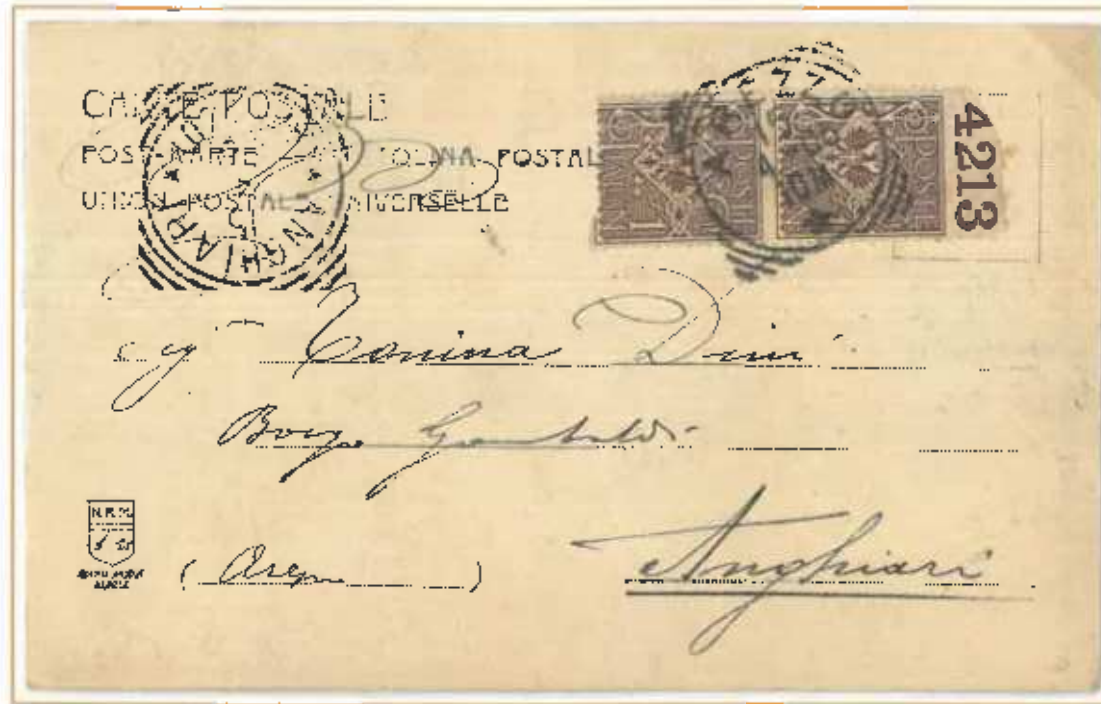 CARTE POSTALE
POSTKARTE — CARTOLINA POSTAL
UNION POSTALE UNIVERSELLE
ANGHIARI
4213
Tonina Dini
Borgo Garibaldi
Anghiari
N.P.G.